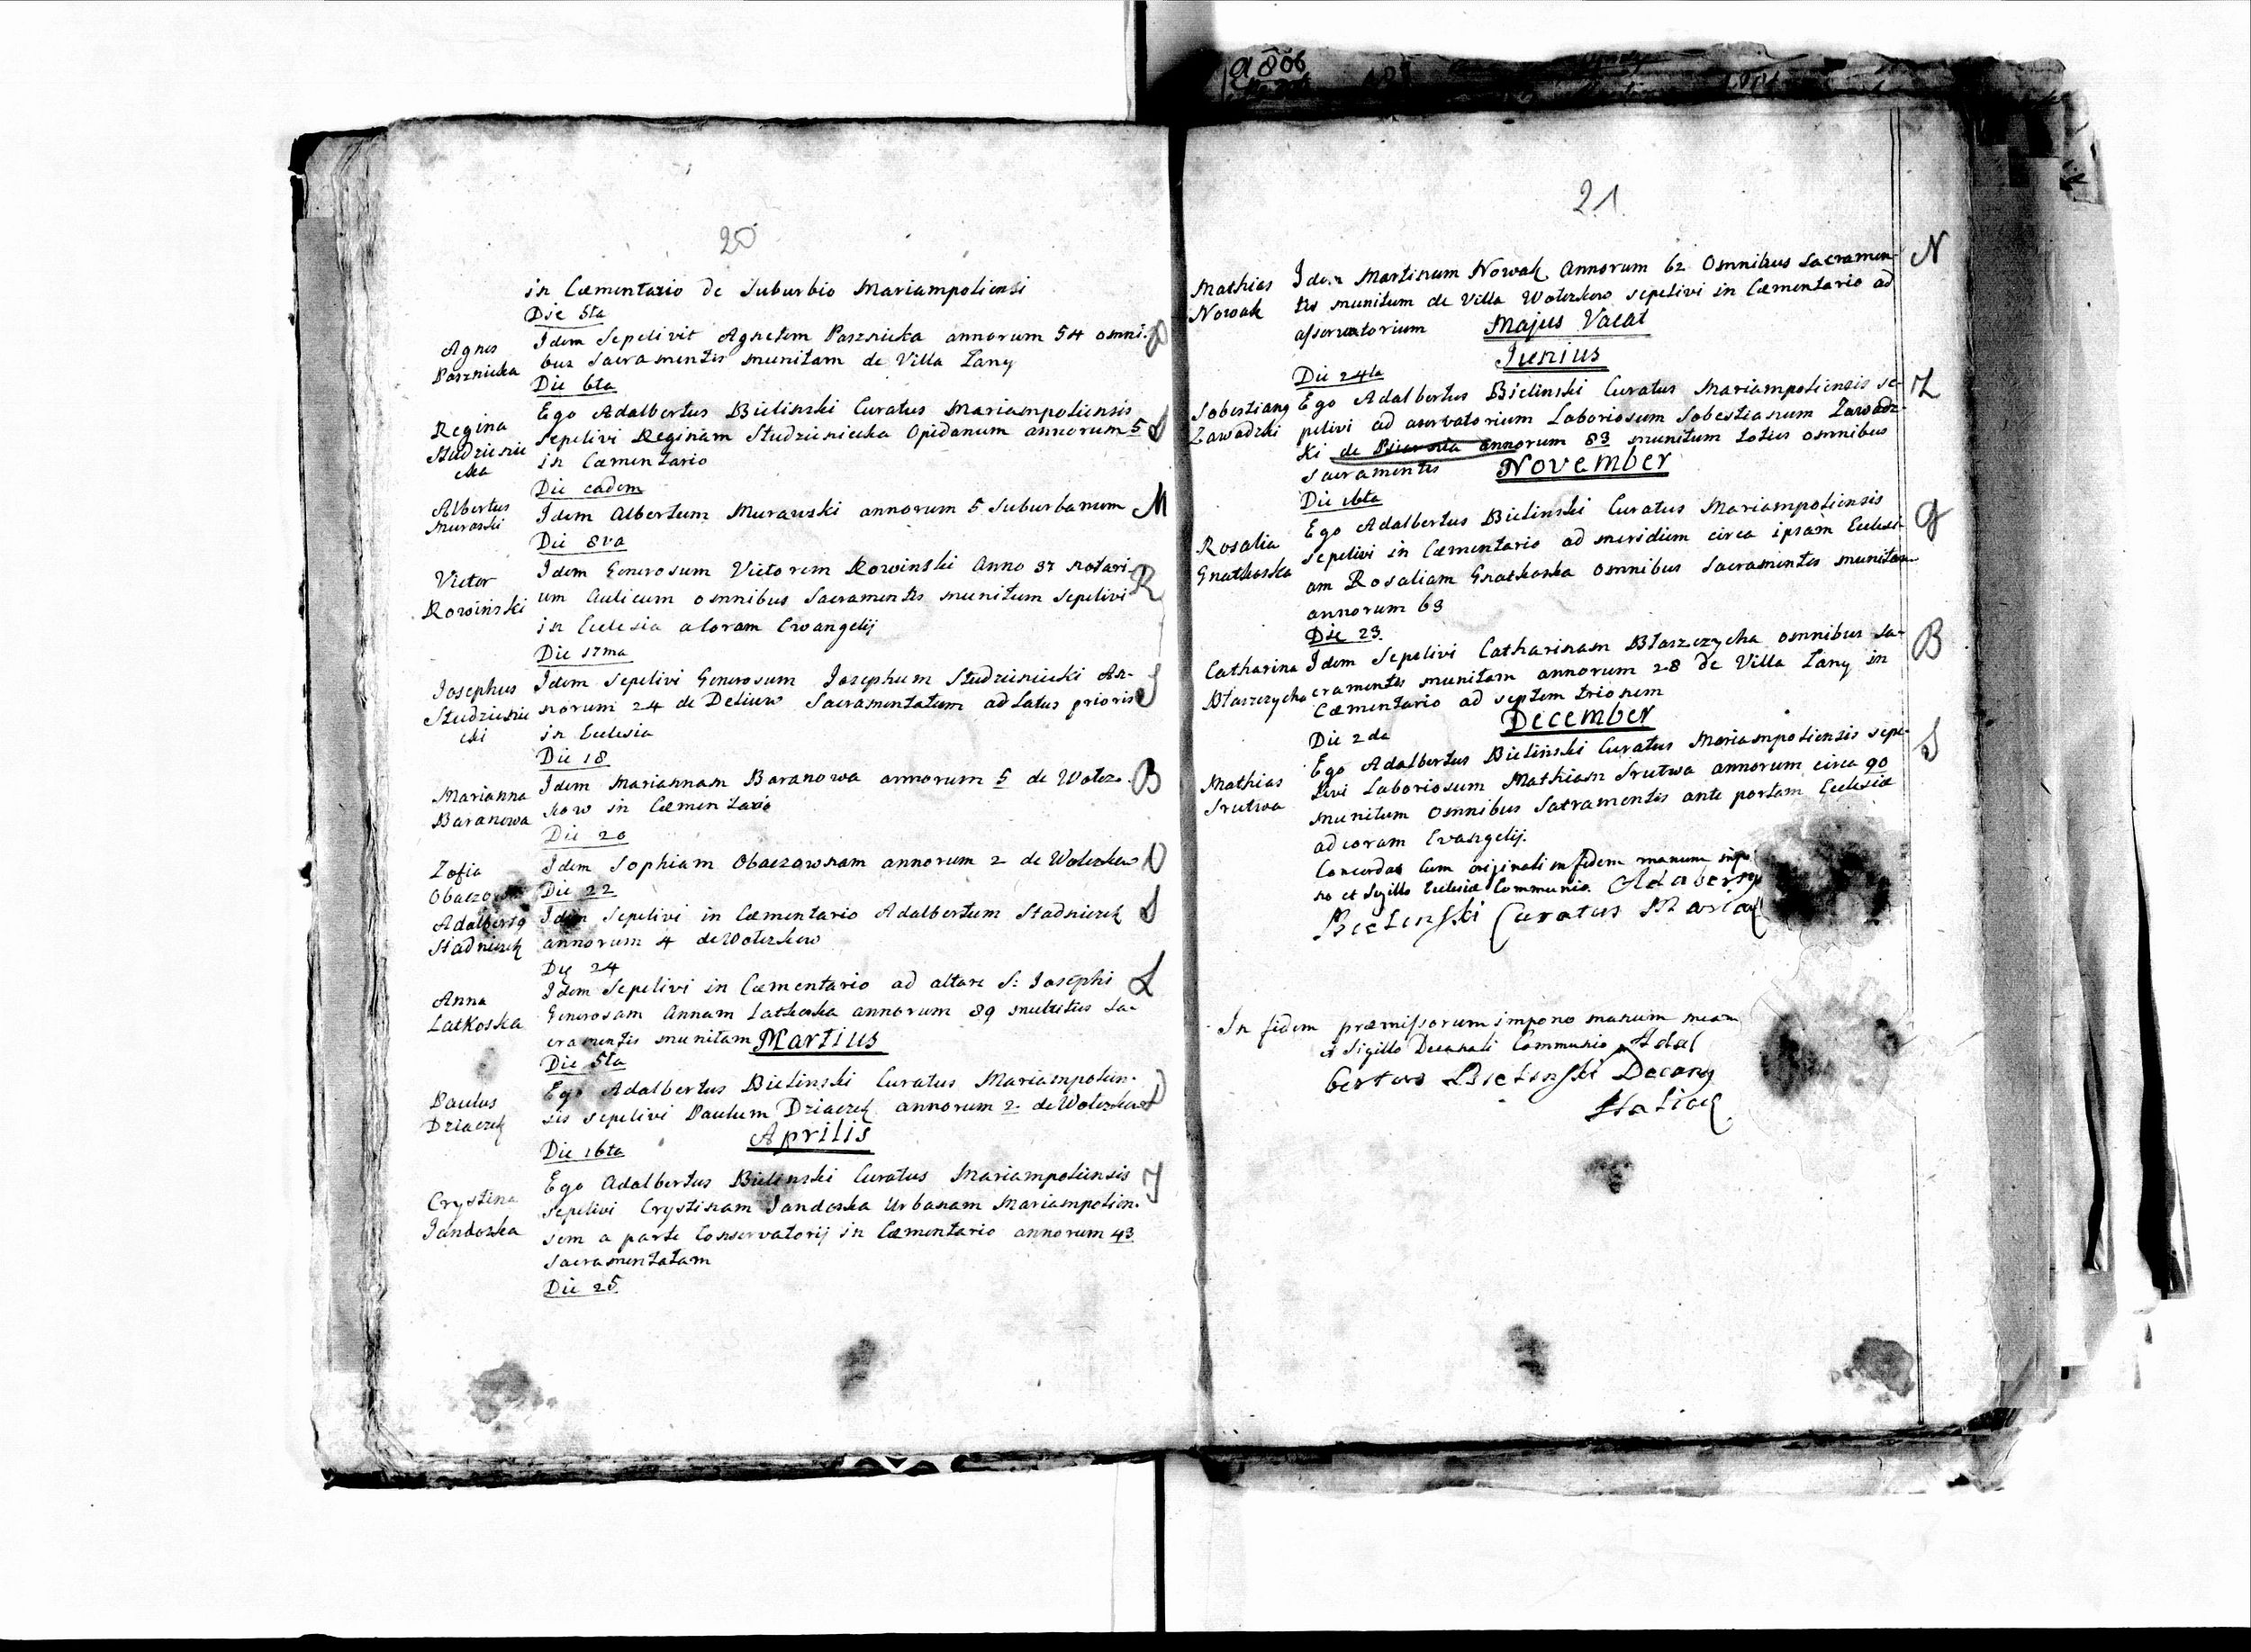 20
in Cæmentario de Suburbio Mariampoliensi
Die 5ta
Agnes Pasznicka
Idem Sepelivit Agnetem Pasznicka annorum 54 omni-
bus Sacramentis munitam de Villa Łany
Die 6ta
Regina Studzienicka
Ego Adalbertus Bielinski Curatus Mariampoliensis
Sepelivi Reginam Studzienicka Opidanum annorum 5 S
in Cæmentario
Die eadem
Albertus Muraski
Idem Albertum Murawski annorum 5 Suburbanum M
Die 8va
Victor Rowiński
Idem Generosum Victorem Rowinski Anno 37 notari- R
um Aulicum omnibus Sacramentis munitum Sepelivi
in Eclesia a Evangelij
Die 17ma
Josephus Studzienicki
Idem Sepelivi Generosum Josephum Studzienicki An-
norum 24 de Deliew Sacramentatum ad Latus prioris S
in Eclesia
Die 18
Marianna Baranowa
Idem Mariannam Baranowa annorum 5 de Wołcz- B
kow in Cæmentario
Die 20
Zofia
Idem Sophiam Obaczownam annorum 2 de Wołczkow O
Die 22
Stadniczek
Idem Sepelivi in Cæmentario Adalbertum Stadniczek S
annorum 4 de Wołczkow
Die 24
Anna Latkoska
Idem Sepelivi in Cæmentario ad altare S: Josephi L
Generosam Annam Latkoska annorum 89 Sa-
cramentis munitam Martius
Die 5ta
Paulus Dziaczek
Ego Adalbertus Bielinski Curatus Mariampolien-
sis sepelivi Paulum Dziaczek annorum 2 de Wołczkow D
Aprilis
Die 16ta
Crystina Jandoska
Ego Adalbertus Bielinski Curatus Mariampoliensis J
sepelivi Crystinam Jandoska Urbanam Mariampolien-
sem a parte Conservatorij in Cæmentario annorum 43
Sacramentatam
Die 25
21
Mathias Nowak
Idem Martinum Nowak Annorum 62 Omnibus Sacramen- N
tis munitum de Villa Wołczkow sepelivi in Cæmentario ad
asservatorium Majus Vacat
Junius
Die 24ta
Zawadzki
Ego Adalbertus Bielinski Curatus Mariampoliensis se- Z
pelivi ad Laboriosum Sobestianum Zawadz-
ki annorum 83 munitum totus omnibus
Sacramentis November
Die 16ta
Rosalia Gnatkoska
Ego Adalbertus Bielinski Curatus Mariampoliensis G
sepelivi in Cæmentario ad meridiem circa ipsam Eclesi-
am Rosaliam Gnatkoska omnibus Sacramentis munitam
annorum 63
Die 23
Catharina Błaszczycha
Idem Sepelivi Catharinam Błaszczycha omnibus Sa- B
cramentis munitam annorum 28 de Villa Łany in
Cæmentario ad septem trionem
December
Die 2da
Mathias Srutwa
Ego Adalbertus Bieliński Curatus Mariampoliensis sepe- S
livi Laboriosum Mathiam Srutwa annorum circa 90
munitum Omnibus Sacramentis ante portam Eclesiæ
ad coram Evangelij.
Concordat Cum originali in fidem manum impo
no et Sigillo Eclesiæ Communio.
Bielinski Curatus
In fidem præmissorum impono manum meam
et Sigillo Decanali Communio Adal
bertus Bielinski Decanus